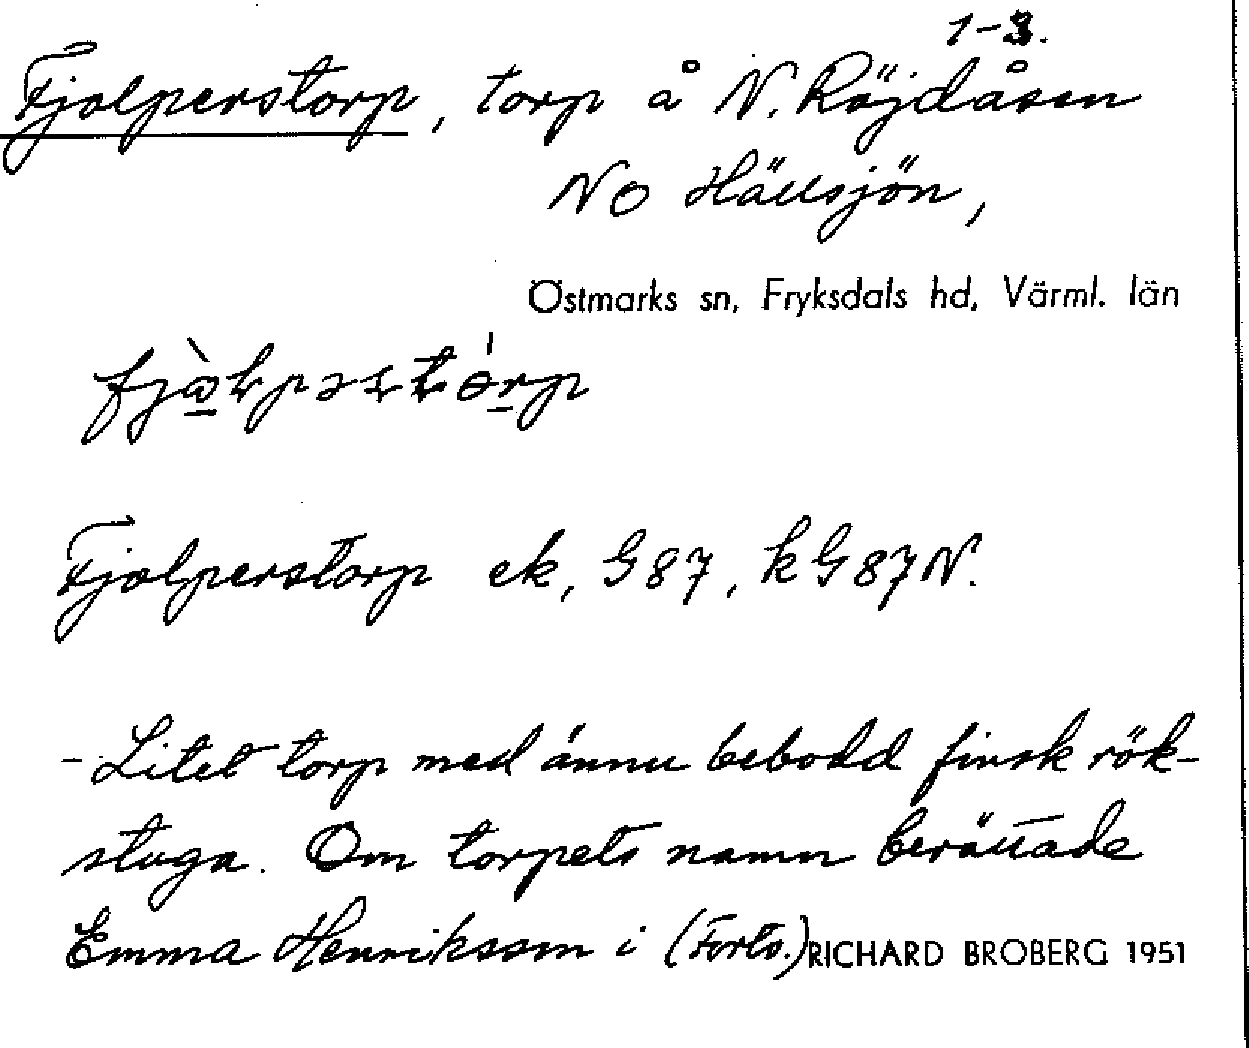 1-3.
Fjolperstorp, torp å N. Röjdåsen
NO Hällsjön,
Östmarks sn, Fryksdals hd, Värml. län
Fjolperstorp ek, G87, kG87N.
- Litet torp med ännu bebodd finsk rök-
stuga. Om torpets namn berättade
Emma Henriksson i (Forts.) RICHARD BROBERG 1951